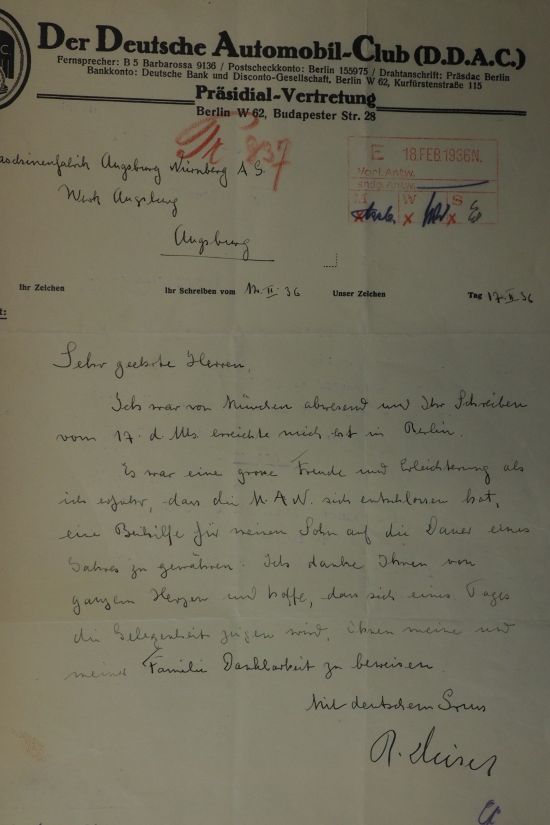 Der Deutsche Automobil-Club (D.D.A.C.)
Fernsprecher: B 5 Barbarossa 9136 / Postscheckkonto: Berlin 155975 / Drahtanschrift: Präsdac Berlin
Bankkonto: Deutsche Bank und Disconto-Gesellschaft, Berlin W 62, Kurfürstenstraße 115
Präsidial-Vertretung
Berlin W 62, Budapester Str. 28
837
E 18.FEB.1936N.
Vorl. Antw.
endg. Antw.
W S
aschinenfabrik Augsburg Nürnberg A G.
Werk Augsburg
Augsburg
Ihr Zeichen Ihr Schreiben vom 12. II. 36 Unser Zeichen Tag 17. II. 36
t:
Sehr geehrte Herren,
Ich war von München abwesend und Ihr Schreiben
vom 17. d Mts. erreichte mich erst in Berlin.
Es war eine grosse Freude und Erleichterung als
ich erfuhr, dass die M.A.N. sich entschlossen hat,
eine Beihilfe für meinen Sohn auf die Dauer eines
Jahres zu gewähren. Ich danke Ihnen von
ganzem Herzen und hoffe, dass sich eines Tages
die Gelegenheit zeigen wird, Ihnen meine und
meiner Familie Dankbarkeit zu beweisen.
Mit deutschem Gruss